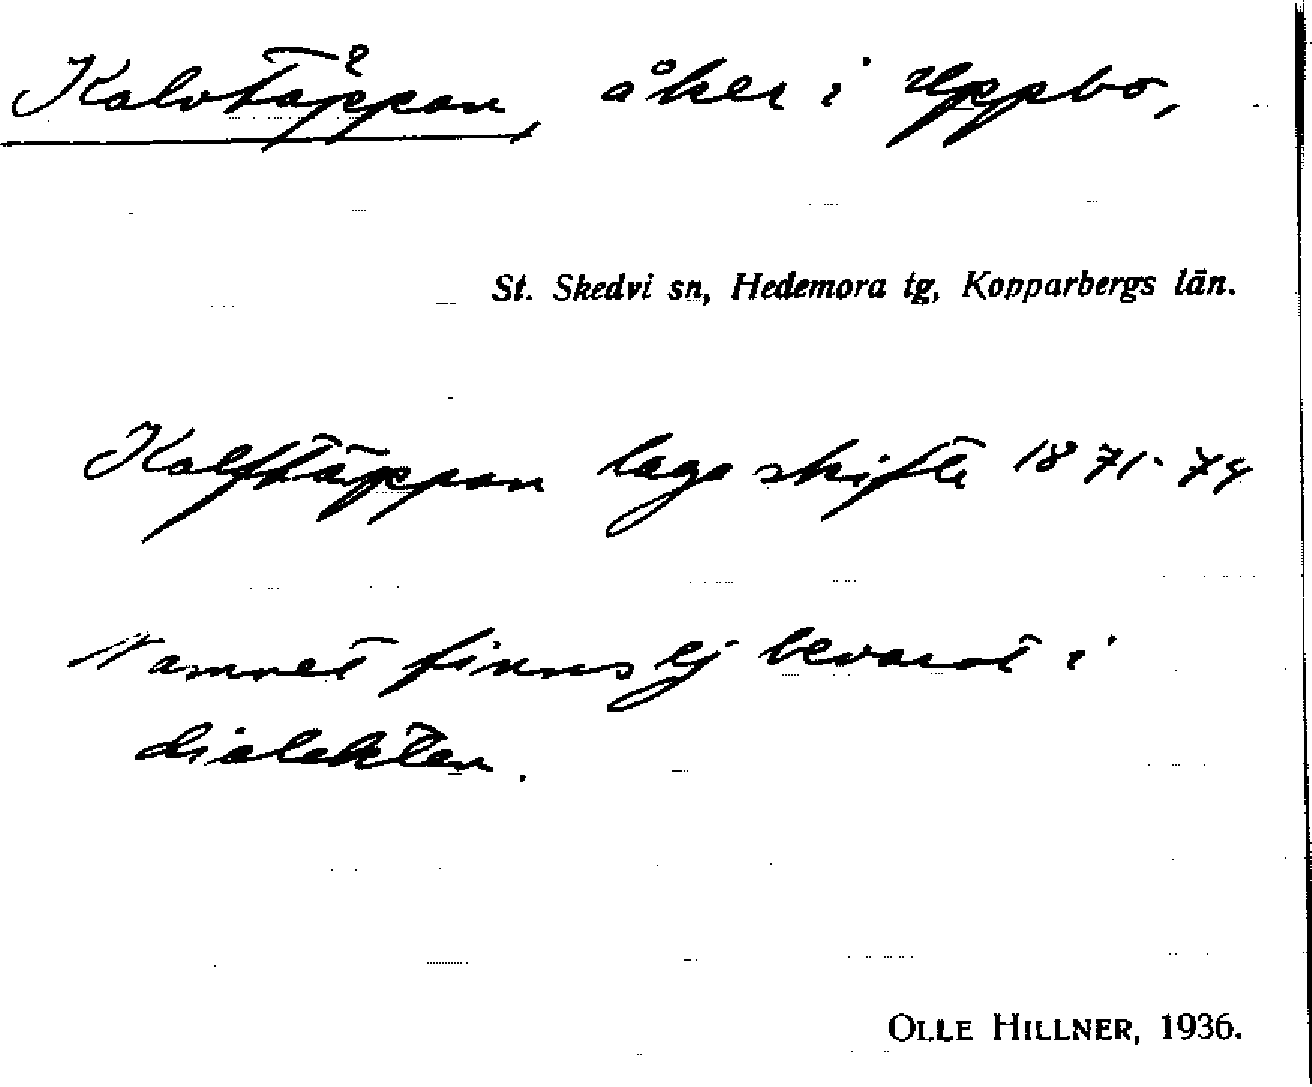 Kalvtäppan, åker i Uppbo,
St. Skedvi sn, Hedemora tg, Kopparbergs län.
Kalftäppan laga skifte 1871-74
Namnet finns ej bevarat i
dialekten.
OLLE HILLNER, 1936.